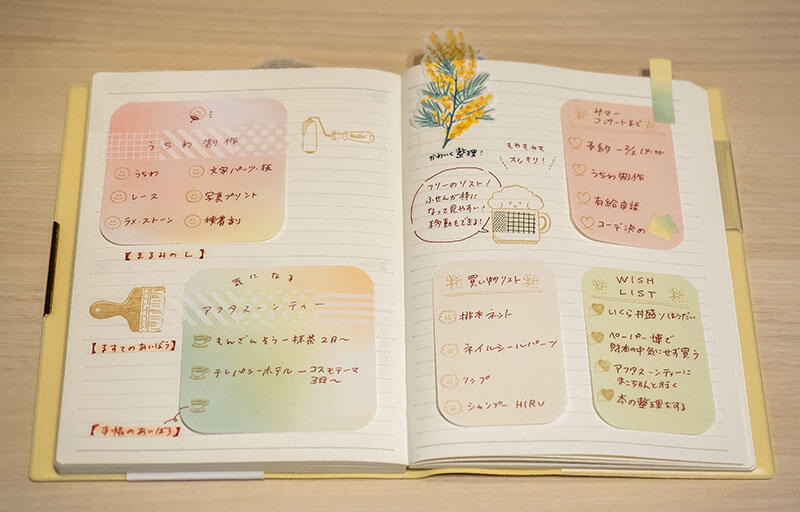 うちわ製作
うちわ
文字パーツ・板
レース
写真プリント
ラメ・ストーン
接着剤
【まるみのし】
気になる
アフタヌーンティー
もんざんそうー抹茶 2月〜
テレパシーホテルーコスモテーマ
3月〜
【ますてのあいぼう】
【手帳のあいぼう】
かわいく整理!
もやもやも
スッキリ!
フリーのリスト!
ふせんが枠に
なって見やすい!
移動もできる!
サマー
コンサートまで
予約
うちわ製作
有給申請
コーデ決め
買い物リスト
排水ネット
ネイルシールパーツ
リップ
シャンプー HIRU
WISH
LIST
いくら丼盛りほうだい
ペーパー博で
財布の中気にせず買う
アフタヌーンティーに
まこちんと行く
本の整理をする